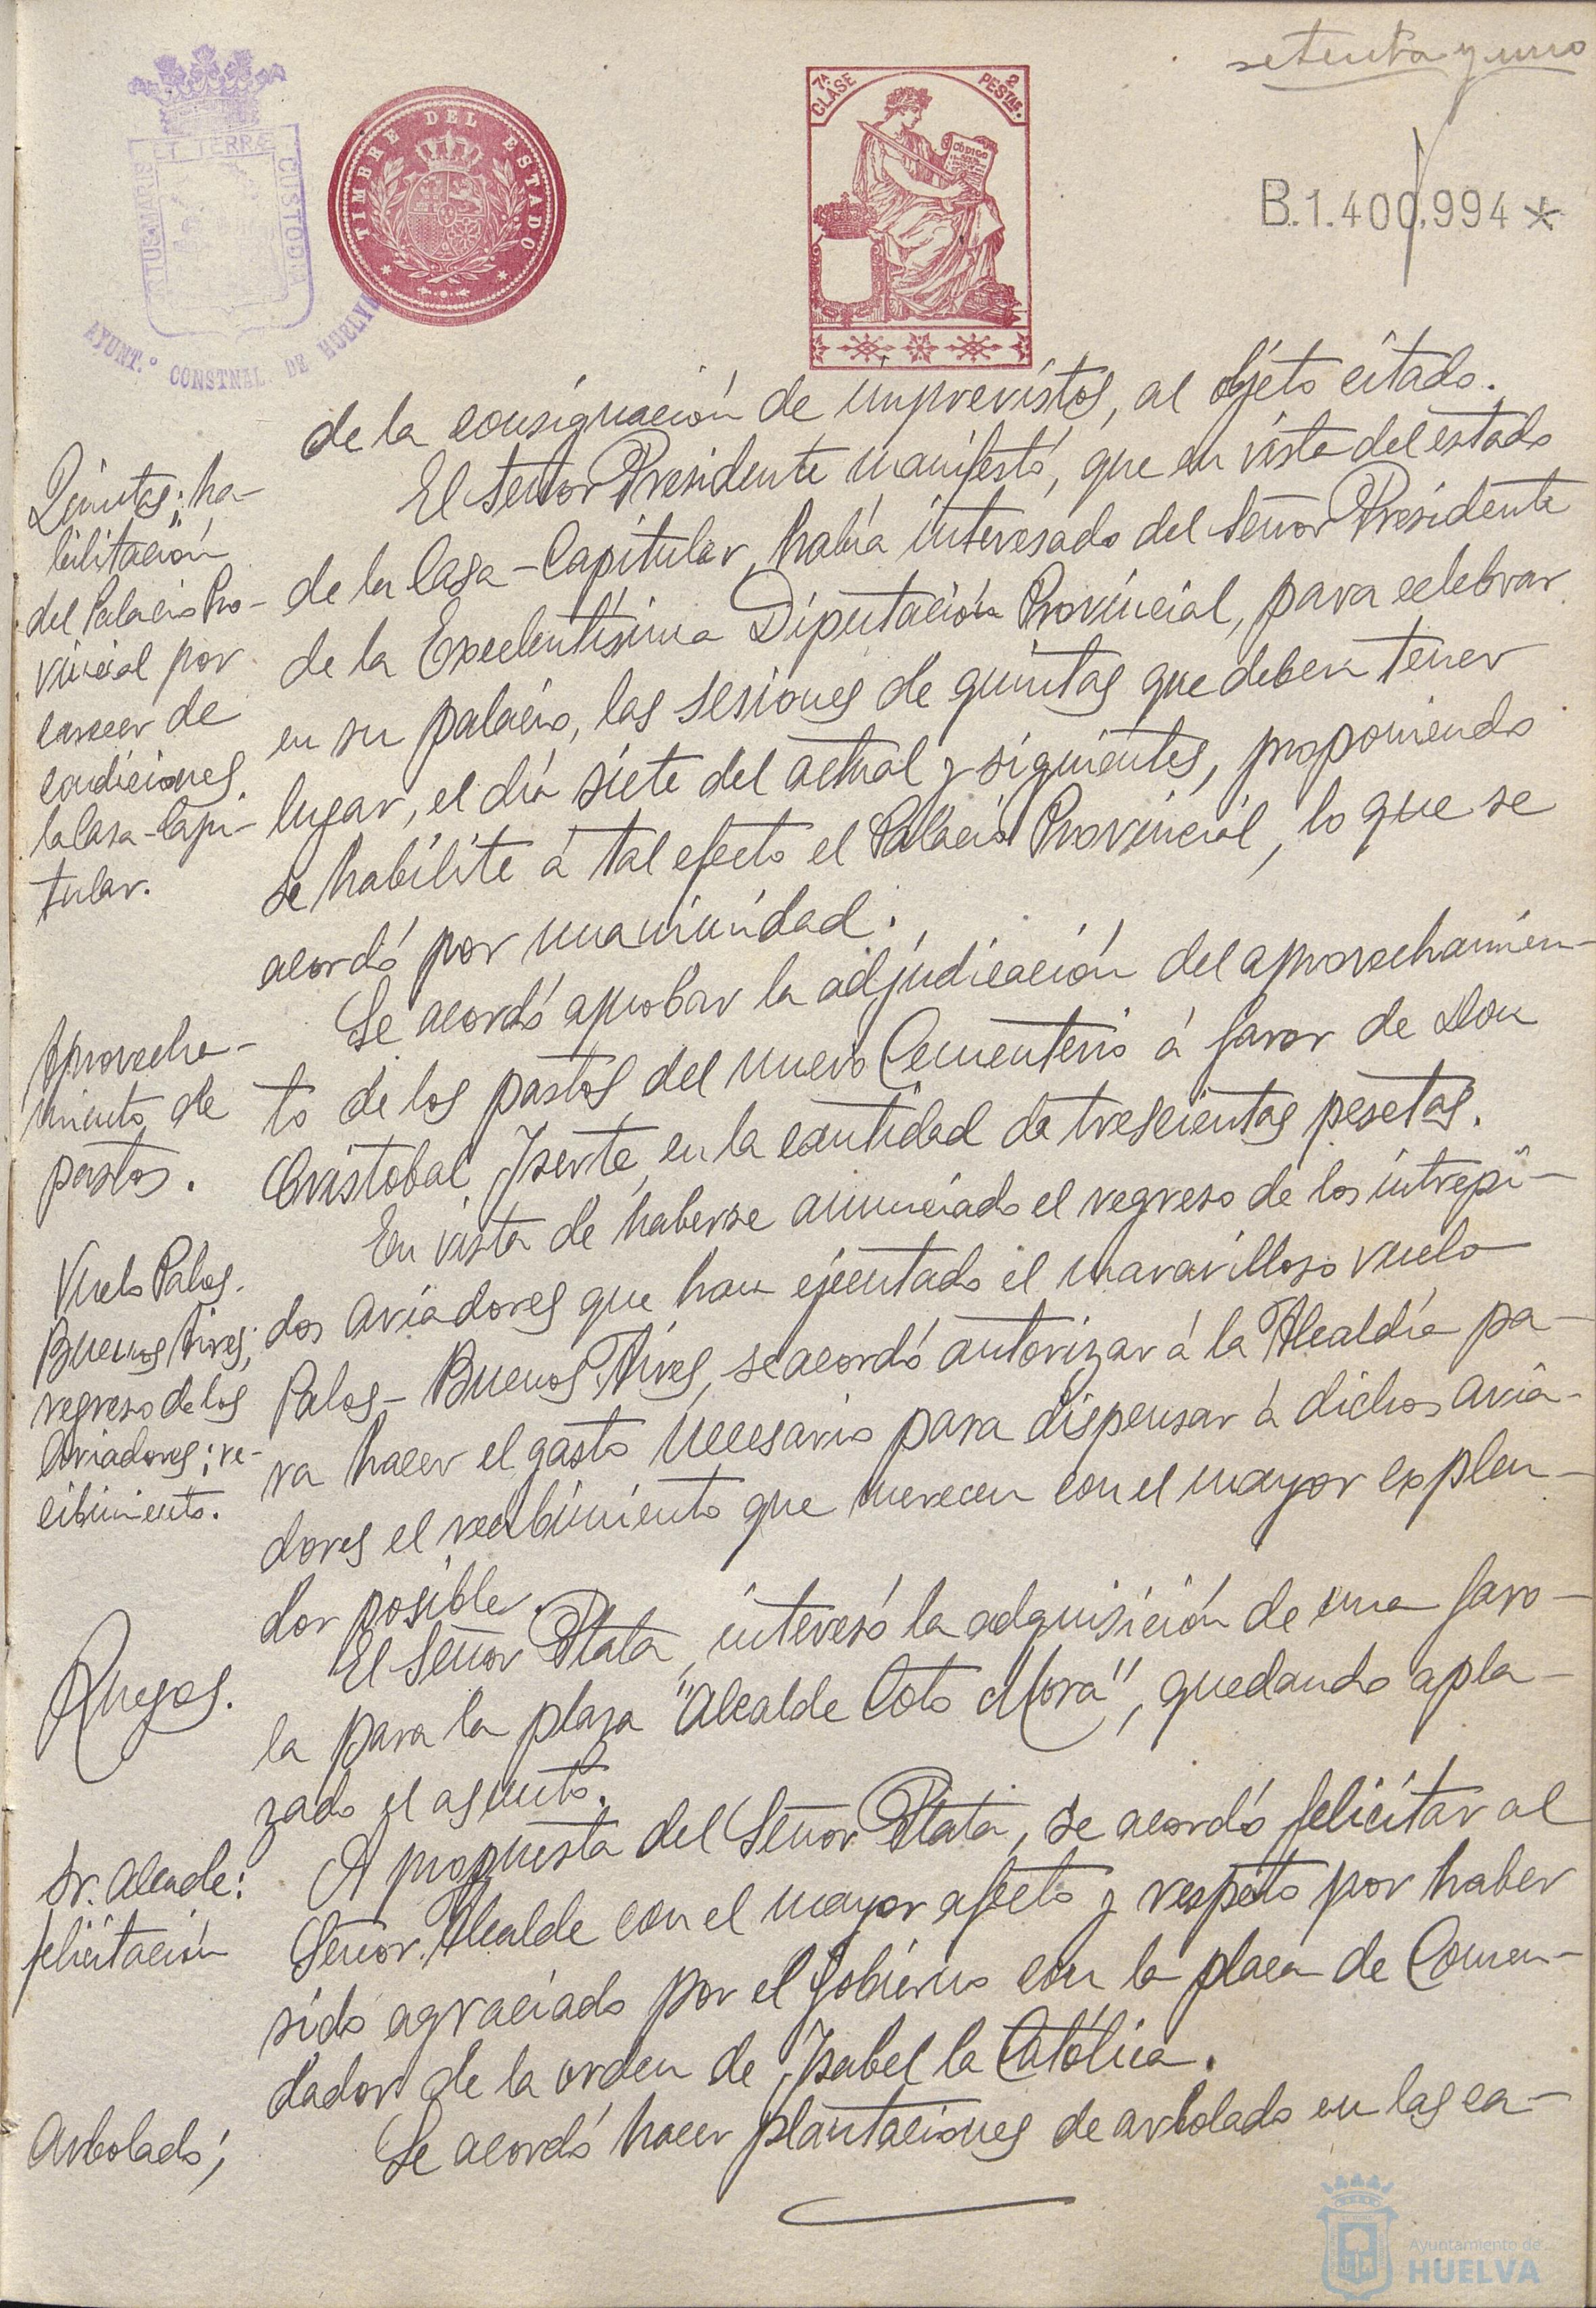 setenta y uno
PORTUS MARIS ET TERRÆ CUSTODIA
AYUNT.º CONSTNAL. DE HUELVA
TIMBRE DEL ESTADO
7ª CLASE
2 PESTAS.
CÓDIGO
B.1.400,994*
de la consignación de imprevistos, al objeto citado.
Quintas; ha-
bilitación
del Palacio Pro-
vincial por
carecer de
condiciones
la Casa-Capi-
tular.
El Señor Presidente manifestó, que en vista del estado
de la Casa-Capitular, había interesado del Señor Presidente
de la Excelentísima Diputación Provincial, para celebrar
en su palacio, las sesiones de quintas que deben tener
lugar, el día siete del actual y siguientes, proponiendo
se habilite á tal efecto el Palacio Provincial, lo que se
acordó por unanimidad.
Aprovecha-
miento de
pastos.
Se acordó aprobar la adjudicación del aprovechamien-
to de los pastos del nuevo Cementerio á favor de Don
Cristobal Iserte, en la cantidad de trescientas pesetas.
Vuelo Palos-
Buenos Aires;
regreso de los
Aviadores; re-
cibimiento.
En vista de haberse anunciado el regreso de los intrepi-
dos Aviadores que han ejecutado el maravilloso vuelo
Palos-Buenos Aires, se acordó autorizar á la Alcaldía pa-
ra hacer el gasto necesario para dispensar á dichos Avia-
dores el recibimiento que merecen con el mayor explen-
dor posible.
Ruegos.
El Señor Plata, interesó la adquisición de una faro-
la para la plaza "Alcalde Coto Mora", quedando apla-
zado el asunto.
Sr. Alcade:
felicitación
A propuesta del Señor Plata, se acordó felicitar al
Señor Alcalde con el mayor afecto y respeto por haber
sido agraciado por el Gobierno con la placa de Comen-
dador de la orden de Isabel la Católica.
Arbolado;
Se acordó hacer plantaciones de arbolado en las ca-
Ayuntamiento de
HUELVA